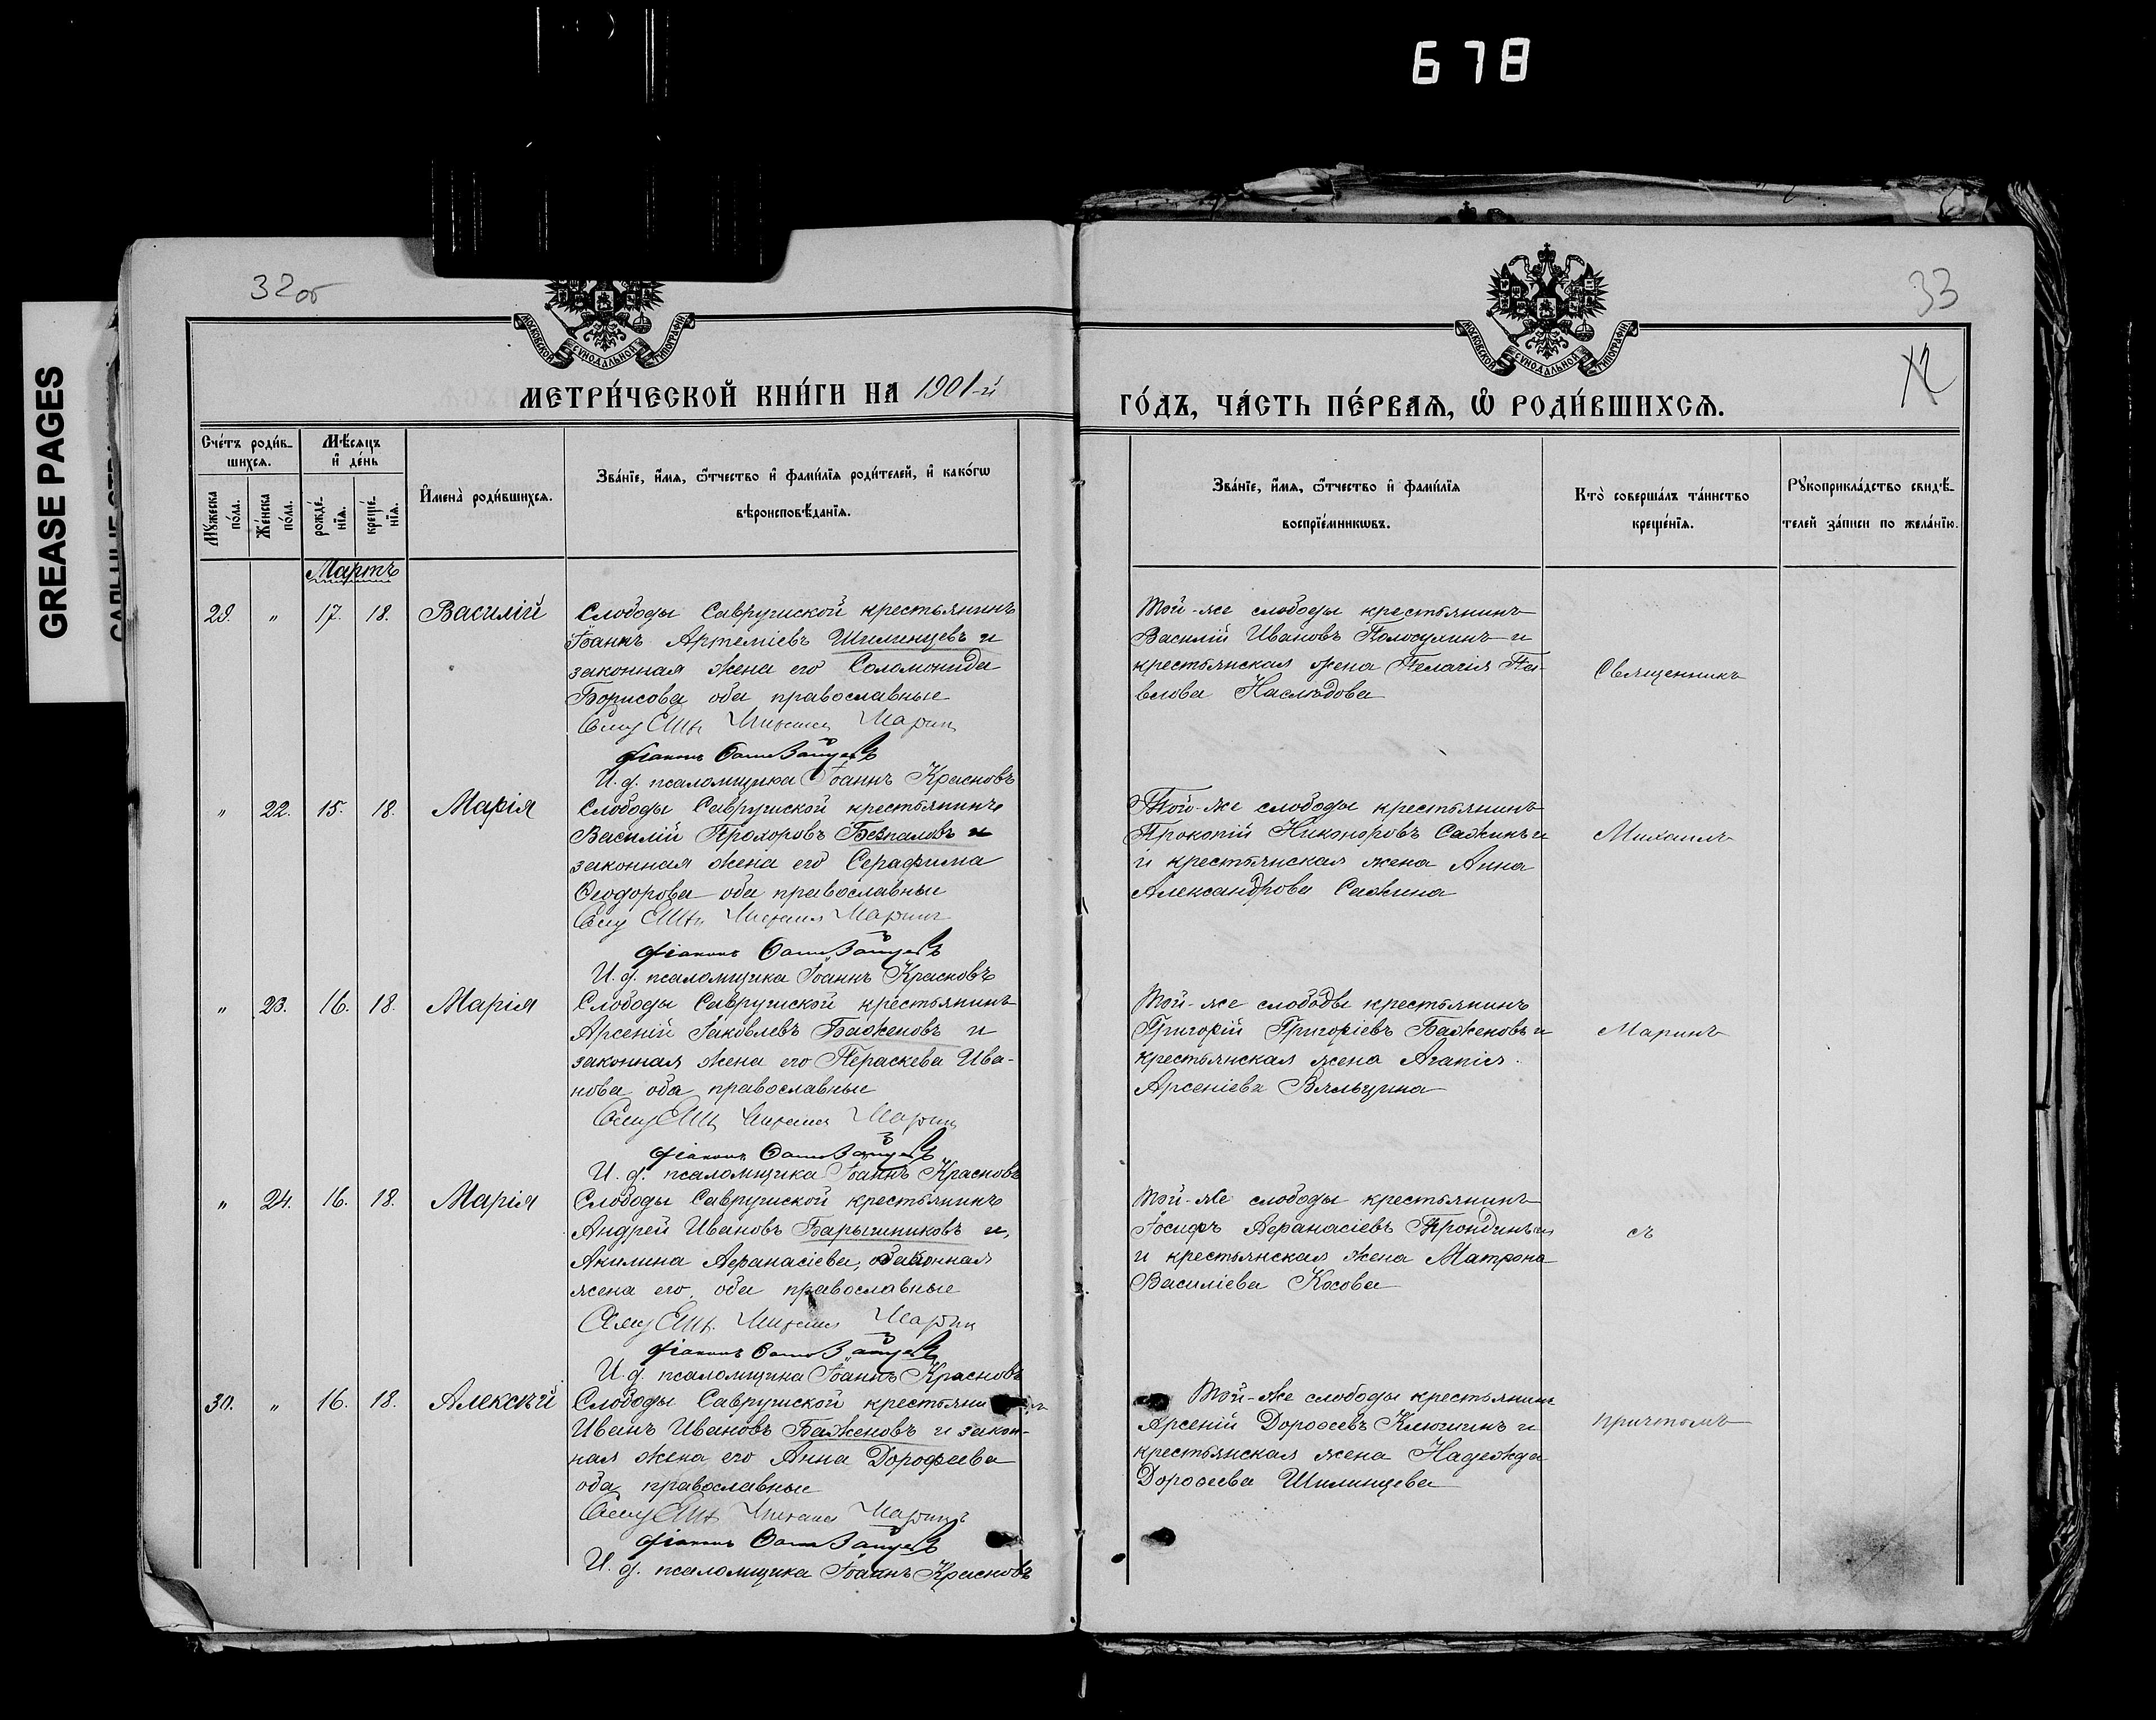 678
GREASE PAGES
32 об
33
12
МОСКОВСКОЙ СѴНОДАЛЬНОЙ ТИПОГРАФІИ
МОСКОВСКОЙ СѴНОДАЛЬНОЙ ТИПОГРАФІИ
МЕТРИ́ЧЕСКОЙ КНИ́ГИ НА 1901-й
ГО́ДЪ, ЧА́СТЬ ПЕ́РВАѦ, Ѽ РОДИ́ВШИХСѦ.
Сче́тъ роди́в-
шихсѧ.
Мѣ́сѧцъ
и҆ де́нь
Мꙋ́жеска
по́ла.
Же́нска
по́ла.
рожде́-
нїѧ.
креще́-
нїѧ.
И҆мена̀ роди́вшихсѧ.
Зва́нїе, и҆́мѧ, ѻ҆́тчество и҆ фами́лїѧ роди́телей, и҆ како́гѡ
вѣроисповѣ́данїѧ.
Зва́нїе, и҆́мѧ, ѻ҆́тчество и҆ фами́лїѧ
воспрїе́мникѡвъ.
Кто̀ соверша́лъ та́инство
креще́нїѧ.
Рꙋкоприкла́дство свидѣ́-
телей за́писи по жела́нїю.
Мартъ
29. " 17. 18. Василій
Слободы Саврушской крестьянинъ
Іоаннъ Артеміевъ Шилинцевъ и
законная жена его Соломонида
Борисова оба православные
Свящ Михаил Марин
Діаконъ
И. д. псаломщика Іоаннъ Красновъ
Той-же слободы крестьянинъ
Василій Ивановъ Полосухинъ и
крестьянская жена Пелагія Па-
влова Наслѣдова
Священникъ
" 22. 15. 18. Марія
Слободы Саврушской крестьянинъ
Василій Прохоровъ Безпаловъ и
законная жена его Серафима
Ѳеодорова оба православные
Свящ Михаил Марин
Діаконъ
И. д. псаломщика Іоаннъ Красновъ
Той-же слободы крестьянинъ
Прокопій Никоноровъ Сажинъ и
и крестьянская жена Анна
Александрова Сажина
Михаилъ
" 23. 16. 18. Марія
Слободы Саврушской крестьянинъ
Арсеній Іаковлевъ Баженовъ и
законная жена его Параскева Ива-
нова оба православные
Свящ Михаил Марин
Діаконъ
И. д. псаломщика Іоаннъ Красновъ
Той-же слободы крестьянинъ
Григорій Григоріевъ Баженовъ и
крестьянская жена Агапія
Арсеніева Вяльцина
Маринъ
" 24. 16. 18. Марія
Слободы Саврушской крестьянинъ
Андрей Ивановъ Барышниковъ и
Акилина Аѳанасіева, законная
жена его, оба православные
Свящ Михаил Марин
Діаконъ
И. д. псаломщика Іоаннъ Красновъ
Той-же слободы крестьянинъ
Іосифъ Аѳанасіевъ Трондинъ и
и крестьянская жена Матрона
Василіева Косова
съ
30. " 16. 18. Алексѣй
Слободы Саврушской крестьянинъ
Иванъ Ивановъ Баженовъ и закон-
ная жена его Анна Дорофеева
оба православные
Свящ Михаил Марин
Діаконъ
И. д. псаломщика Іоаннъ Красновъ
Той-же слободы крестьянинъ
Арсеній Дороѳеевъ Клюшинъ и
крестьянская жена Надежда
Дороѳеева Шилинцева
причтомъ